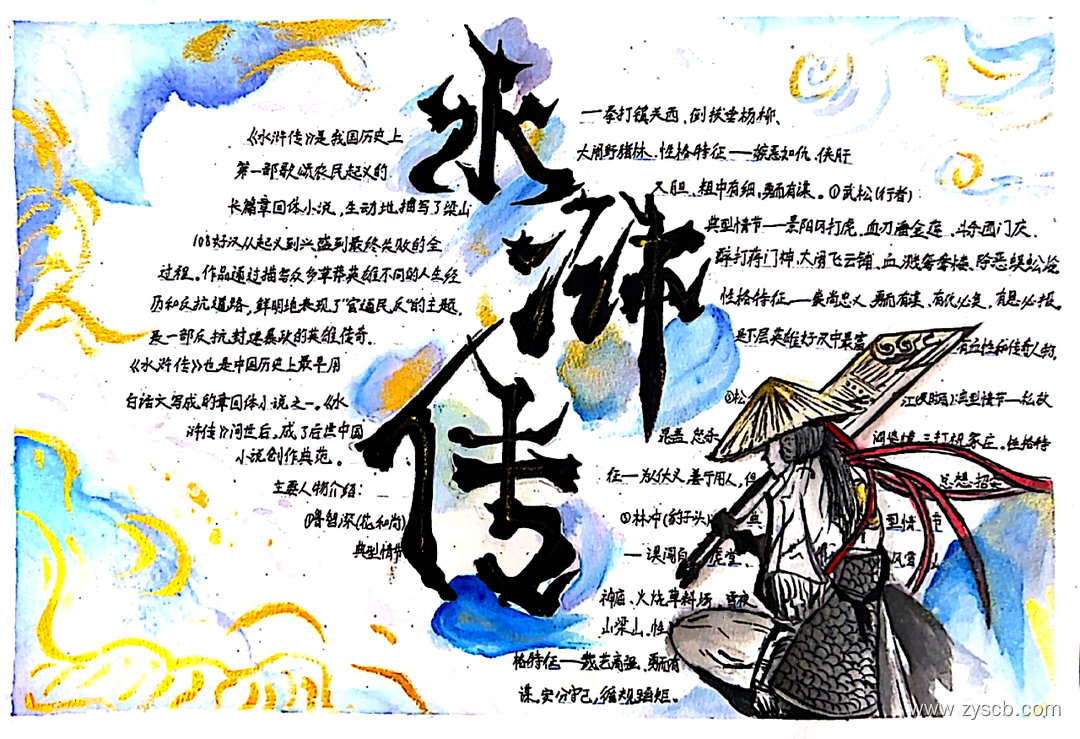 水浒传
《水浒传》是我国历史上
第一部歌颂农民起义的
长篇章回体小说，生动地描写了梁山
108好汉从起义到兴盛到最终失败的全
过程。作品通过描写众多草莽英雄不同的人生经
历和反抗道路，鲜明地表现了"官逼民反"的主题，
是一部反抗封建暴政的英雄传奇。
《水浒传》也是中国历史上最早用
白话文写成的章回体小说之一。《水
浒传》问世后，成了后世中国
小说创作典范。
主要人物介绍：
①鲁智深(花和尚)
典型情节
一拳打镇关西、倒拔垂杨柳、
大闹野猪林、性格特征——嫉恶如仇、侠肝
义胆、粗中有细、勇而有谋。①武松(行者)：
典型情节——景阳冈打虎、血刃潘金莲、斗杀西门庆、
醉打蒋门神、大闹飞云铺、血溅鸳鸯楼、除恶蜈蚣岭
性格特征——崇尚忠义、勇而有谋、有仇必复、有恩必报，
是下层英雄好汉中最富 有血性和传奇人物，
江(及时雨)：典型情节——私放
晁盖、怒杀 阎婆惜、三打祝家庄。性格特
征——为人仗义、善于用人，但 总想招安
①林冲(豹子头) 典型情节
——误闯白虎堂、 风雪山
神庙、火烧草料场、雪夜
山梁山、性
格特征——武艺高强、勇而有
谋、安分守己、循规蹈矩。
www.zyscb.com